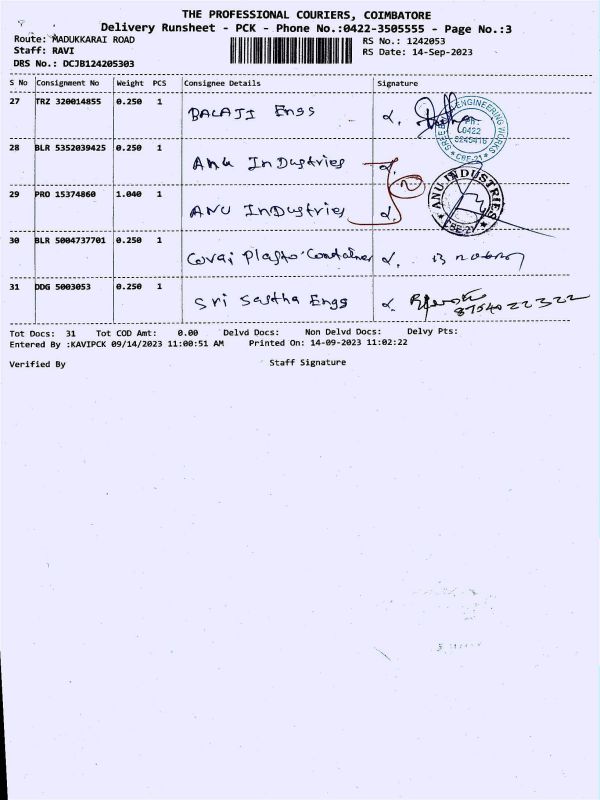 THE PROFESSIONAL COURIERS, COIMBATORE
Delivery Runsheet - PCK - Phone No.:0422-3505555 - Page No.:3
Route: MADUKKARAI ROAD
RS No.: 1242053
Staff: RAVI
RS Date: 14-Sep-2023
DBS No.: DCJB124205303
S No Consignment No Weight PCS Consignee Details Signature
27 TRZ 320014855 0.250 1 BALAJI Engs
ENGINEERING WORKS
PH:
0422
CBE-21
28 BLR 5352039425 0.250 1 Anu Industries
29 PRO 15374860 1.040 1 ANU Industries
ANU INDUSTRIES
CBE-21
30 BLR 5004737701 0.250 1 Covai Plasto Container
31 DDG 5003053 0.250 1 Sri Sastha Engs
8754022322
Tot Docs: 31 Tot COD Amt: 0.00 Delvd Docs: Non Delvd Docs: Delvy Pts:
Entered By :KAVIPCK 09/14/2023 11:00:51 AM Printed On: 14-09-2023 11:02:22
Verified By Staff Signature